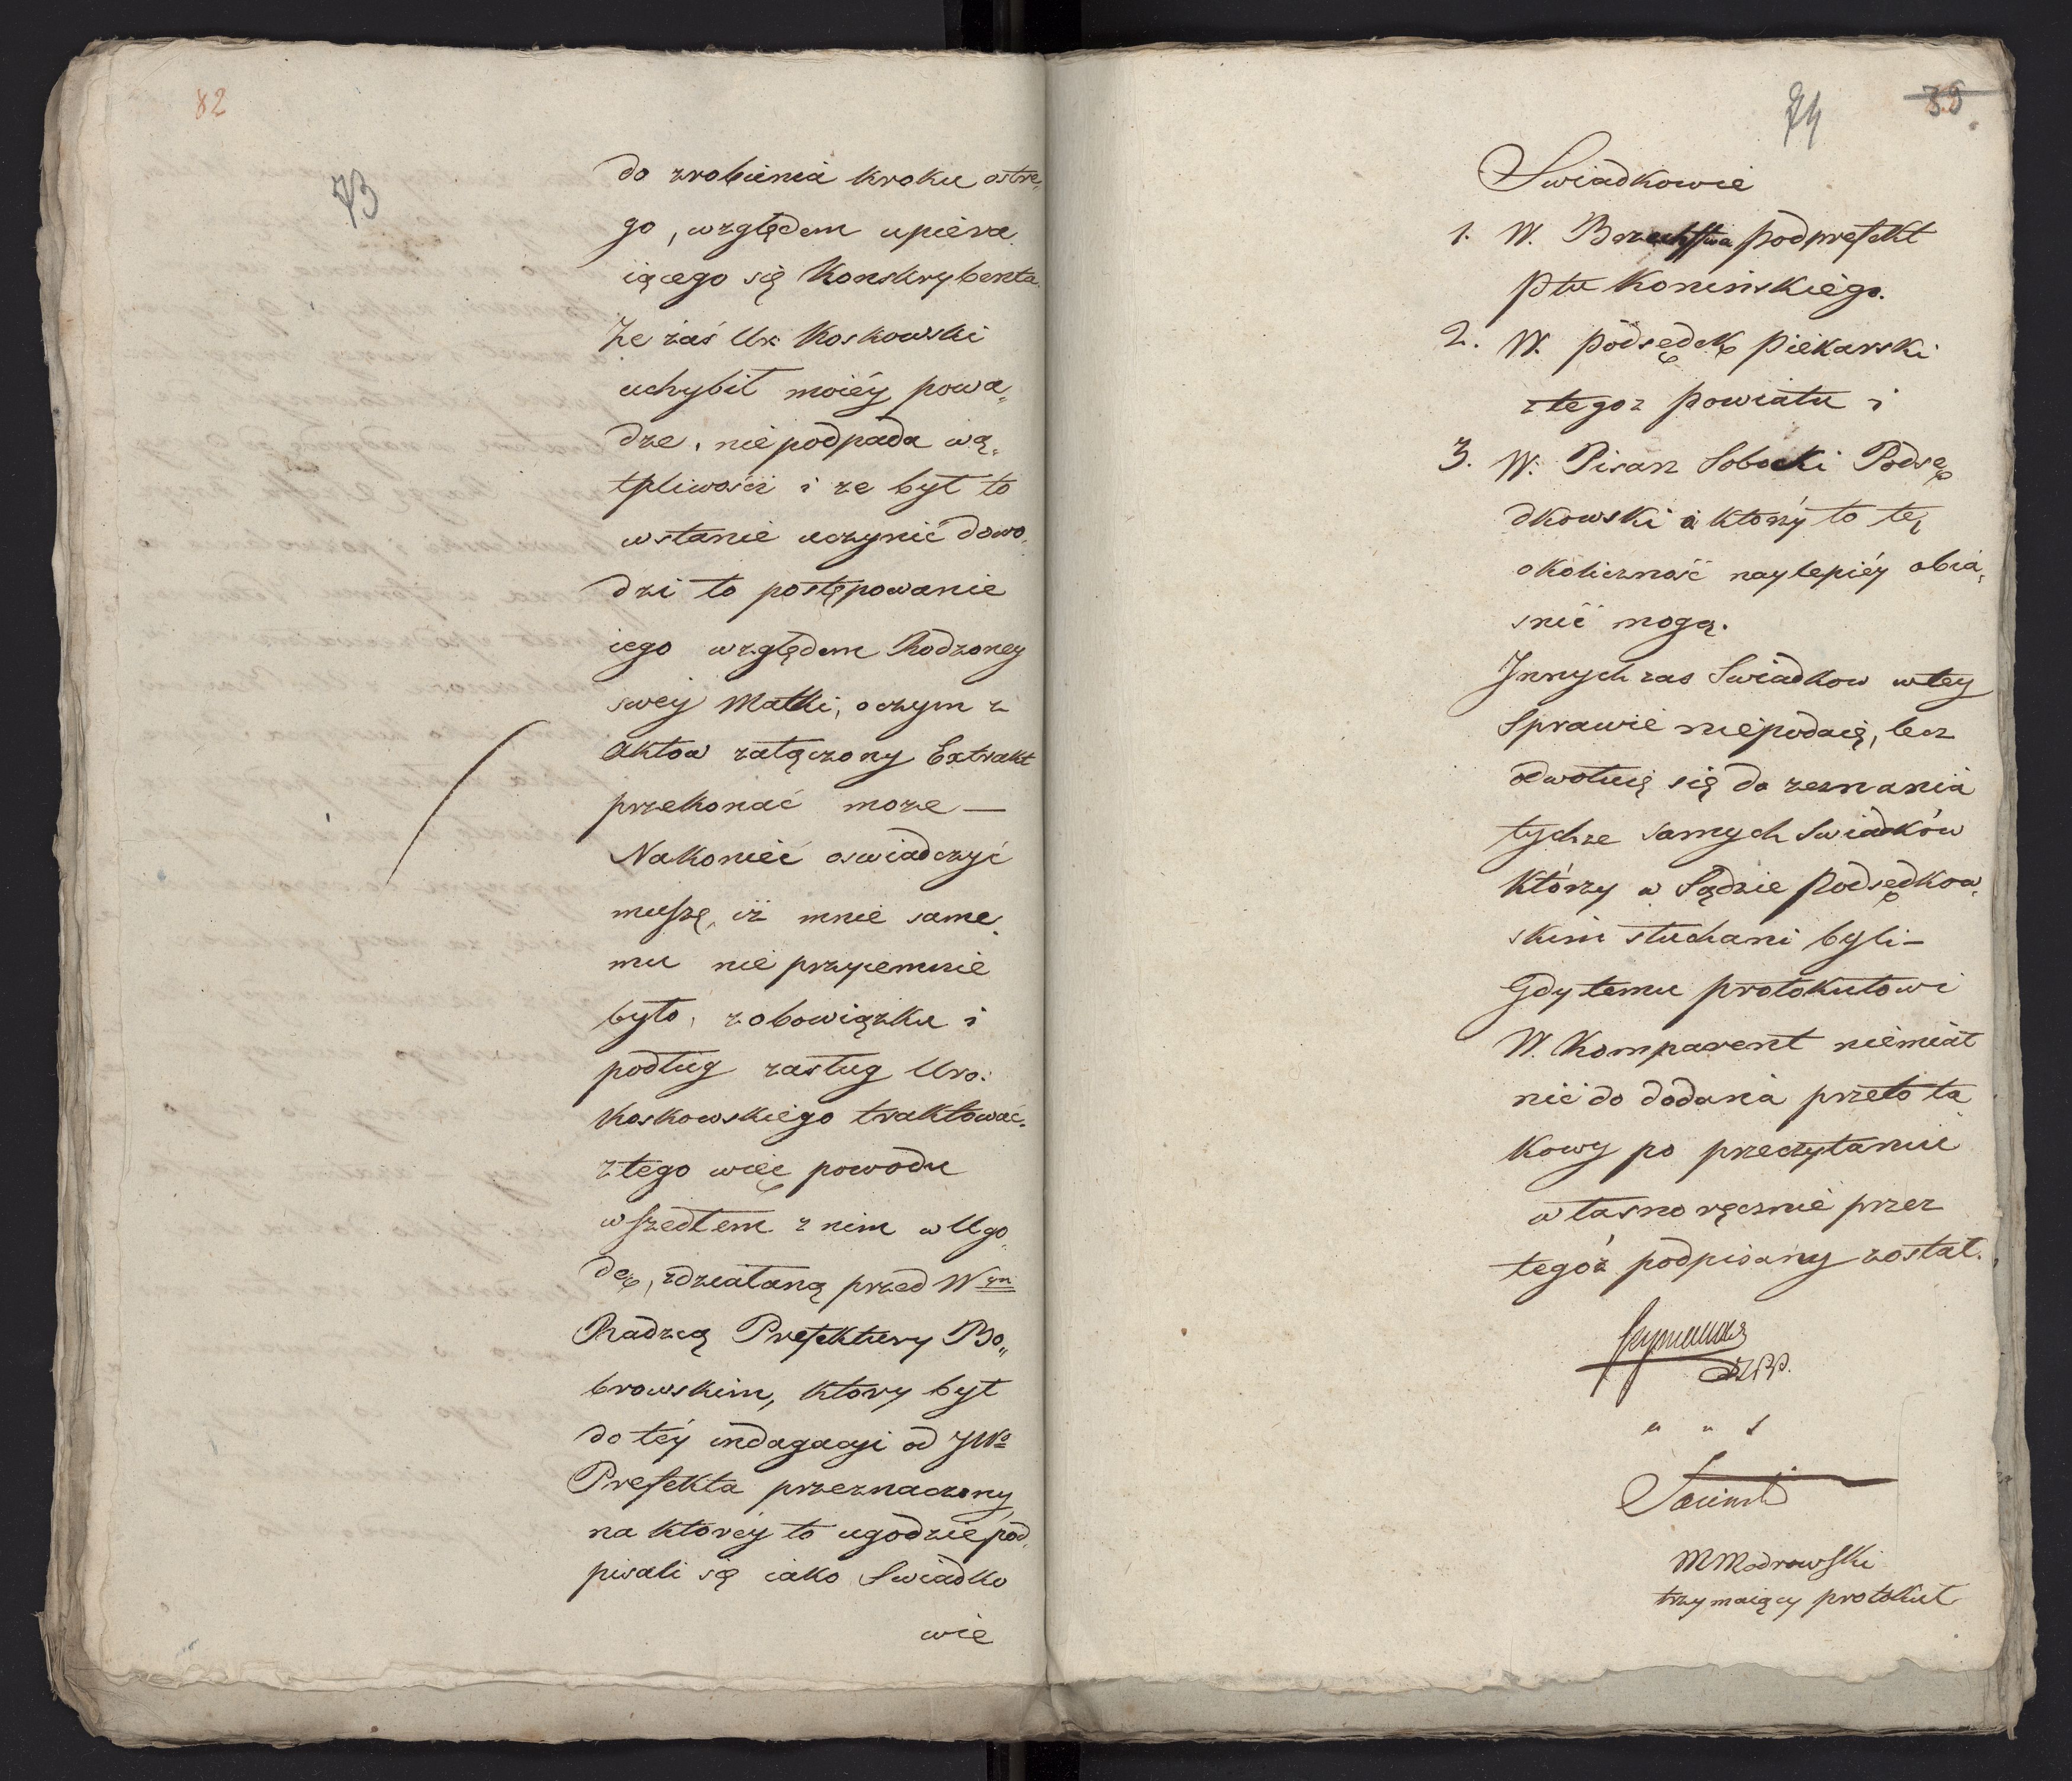 82
73
do zrobienia kroku ostre„
go, względem upiera„
iącego się Konskrybenta.
Że zaś Ur: Koskowski
uchybił moiéy powa„
dze, nie podpada wą„
tpliwości i że był to
wstanie uczynić dowo„
dzi to postępowanie
iego względem Rodzoney
swey Matki, o czym z
Aktow załączony Extrakt
przekonać może —
Nakoniec oswiadczyć
muszę, iż mnie same„
mu nie przyiemnie
było, z obowiązku i
podług zasług Uro:
Koskowskiego traktować.
z tego więc powodu
wszedłem z nim w Ugo„
dę, zdziałaną przed Wym
Radzcą Prefektury Bo„
browskim, ktory był
do téy indagacyi od JWo
Prefekta przeznaczony
na ktoréy to ugodzie pod„
pisali się iako Swiadko
wie
74
39
Swiadkowie
1. W. podprefekt
Ptu Koninskiego.
2. W. podsędek Piekarski
z tegoz Powiatu i
3. W. Pisarz Sobocki Podsę
dkowski a ktorzy to tę
okoliczność naylepiéy obia„
snić mogą.
Jnnych zas Swiadkow w tey
Sprawie niepodaię, lecz
odwołuię się do zeznania
tychze samych Swiadków
którzy w Sądzie Podsędkow„
skim słuchani byli —
Gdy temu protokułowi
W. Komparent niemiał
nic do dodania przeto ta
kowy po przeczytaniu
własnoręcznie przez
tegóż podpisany został.
u u s
MModrowski
trzymaiący protokuł